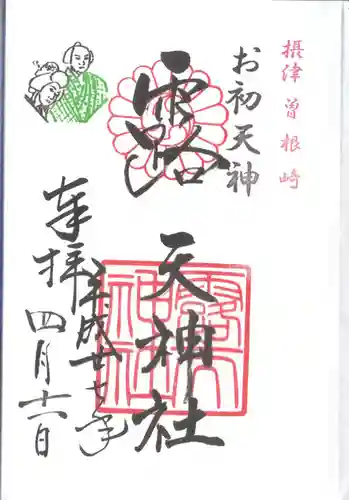 摂津 曽根崎
お初天神
露天神社
奉拝
平成廿七年
四月十六日
露天神社